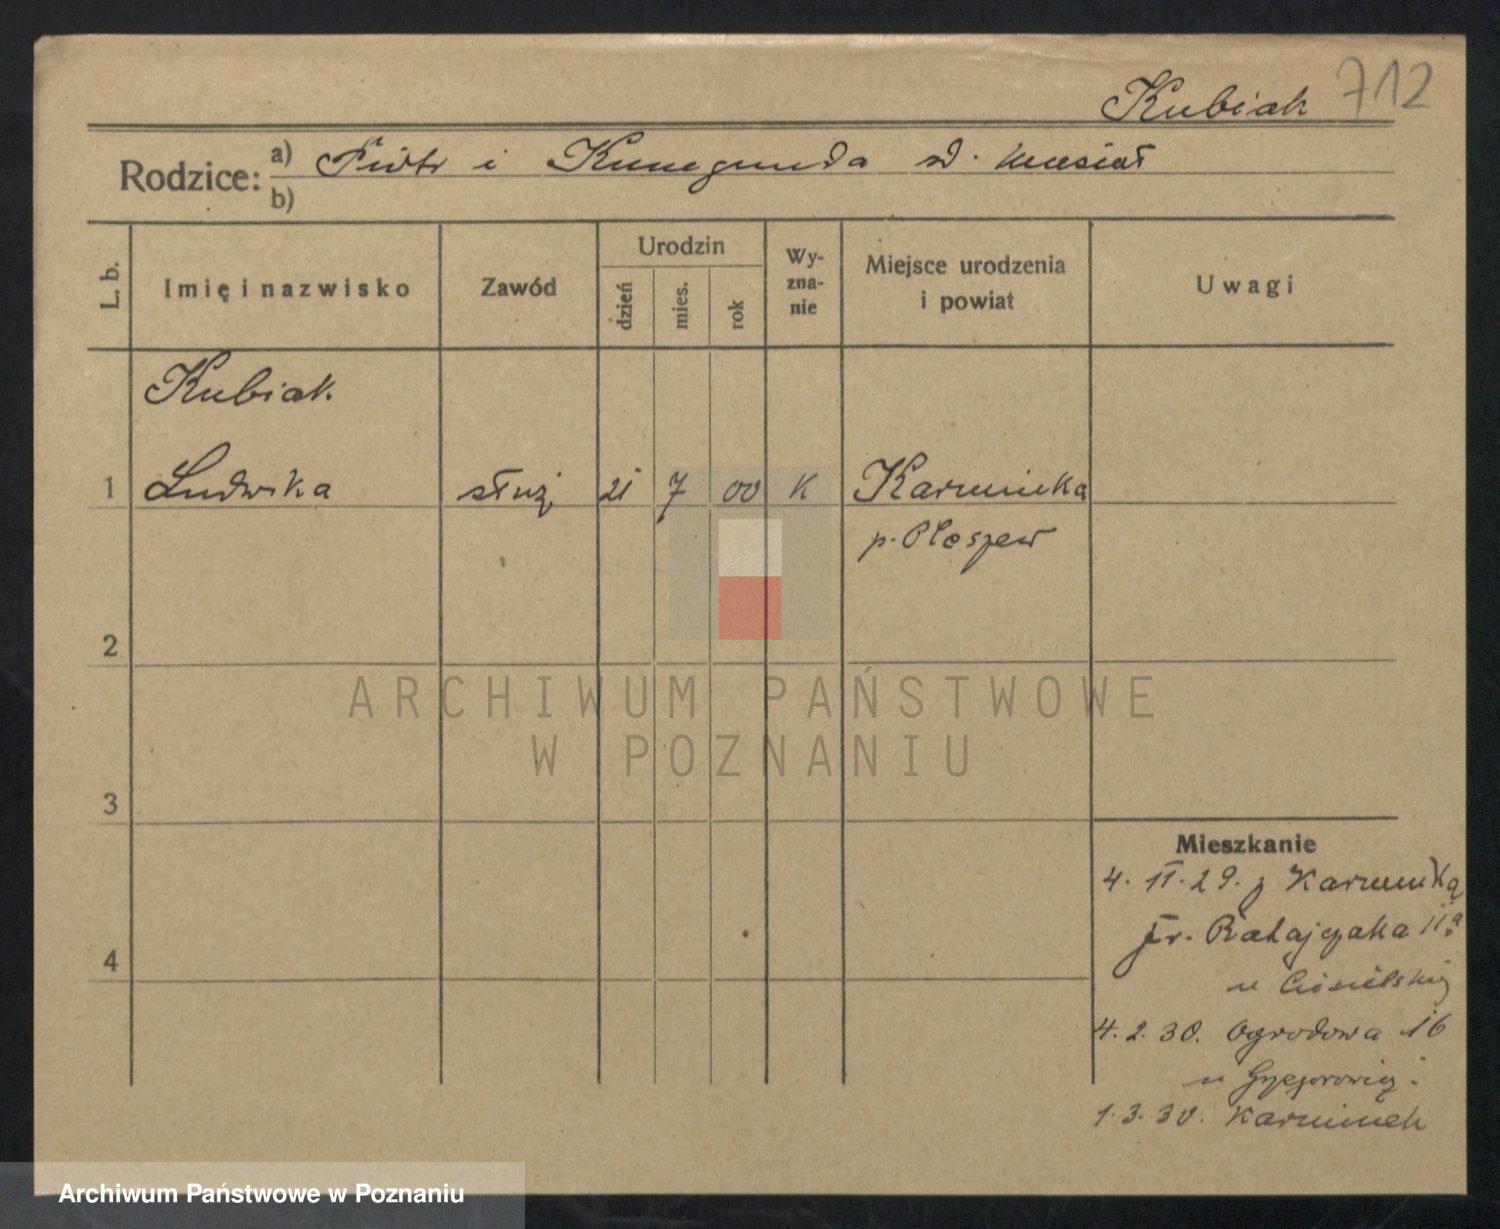 Kubiak 712
Rodzice: a) Piotr i Kunegunda d. Musiał
b)
L. b.
Imię i nazwisko
Zawód
Urodzin
dzień
mies.
rok
Wy-
zna-
nie
Miejsce urodzenia
i powiat
Uwagi
Kubiak
1 Ludwika służ 21 7 00 K Karminka
p. Pleszew
2
ARCHIWUM PAŃSTWOWE
W POZNANIU
3
Mieszkanie
4. 11. 29. z Karminka
Fr. Ratajczaka 11a
4
u Ciesielskiej
4. 2. 30. Ogrodowa 16
u
1. 3. 30. Karminek
Archiwum Państwowe w Poznaniu